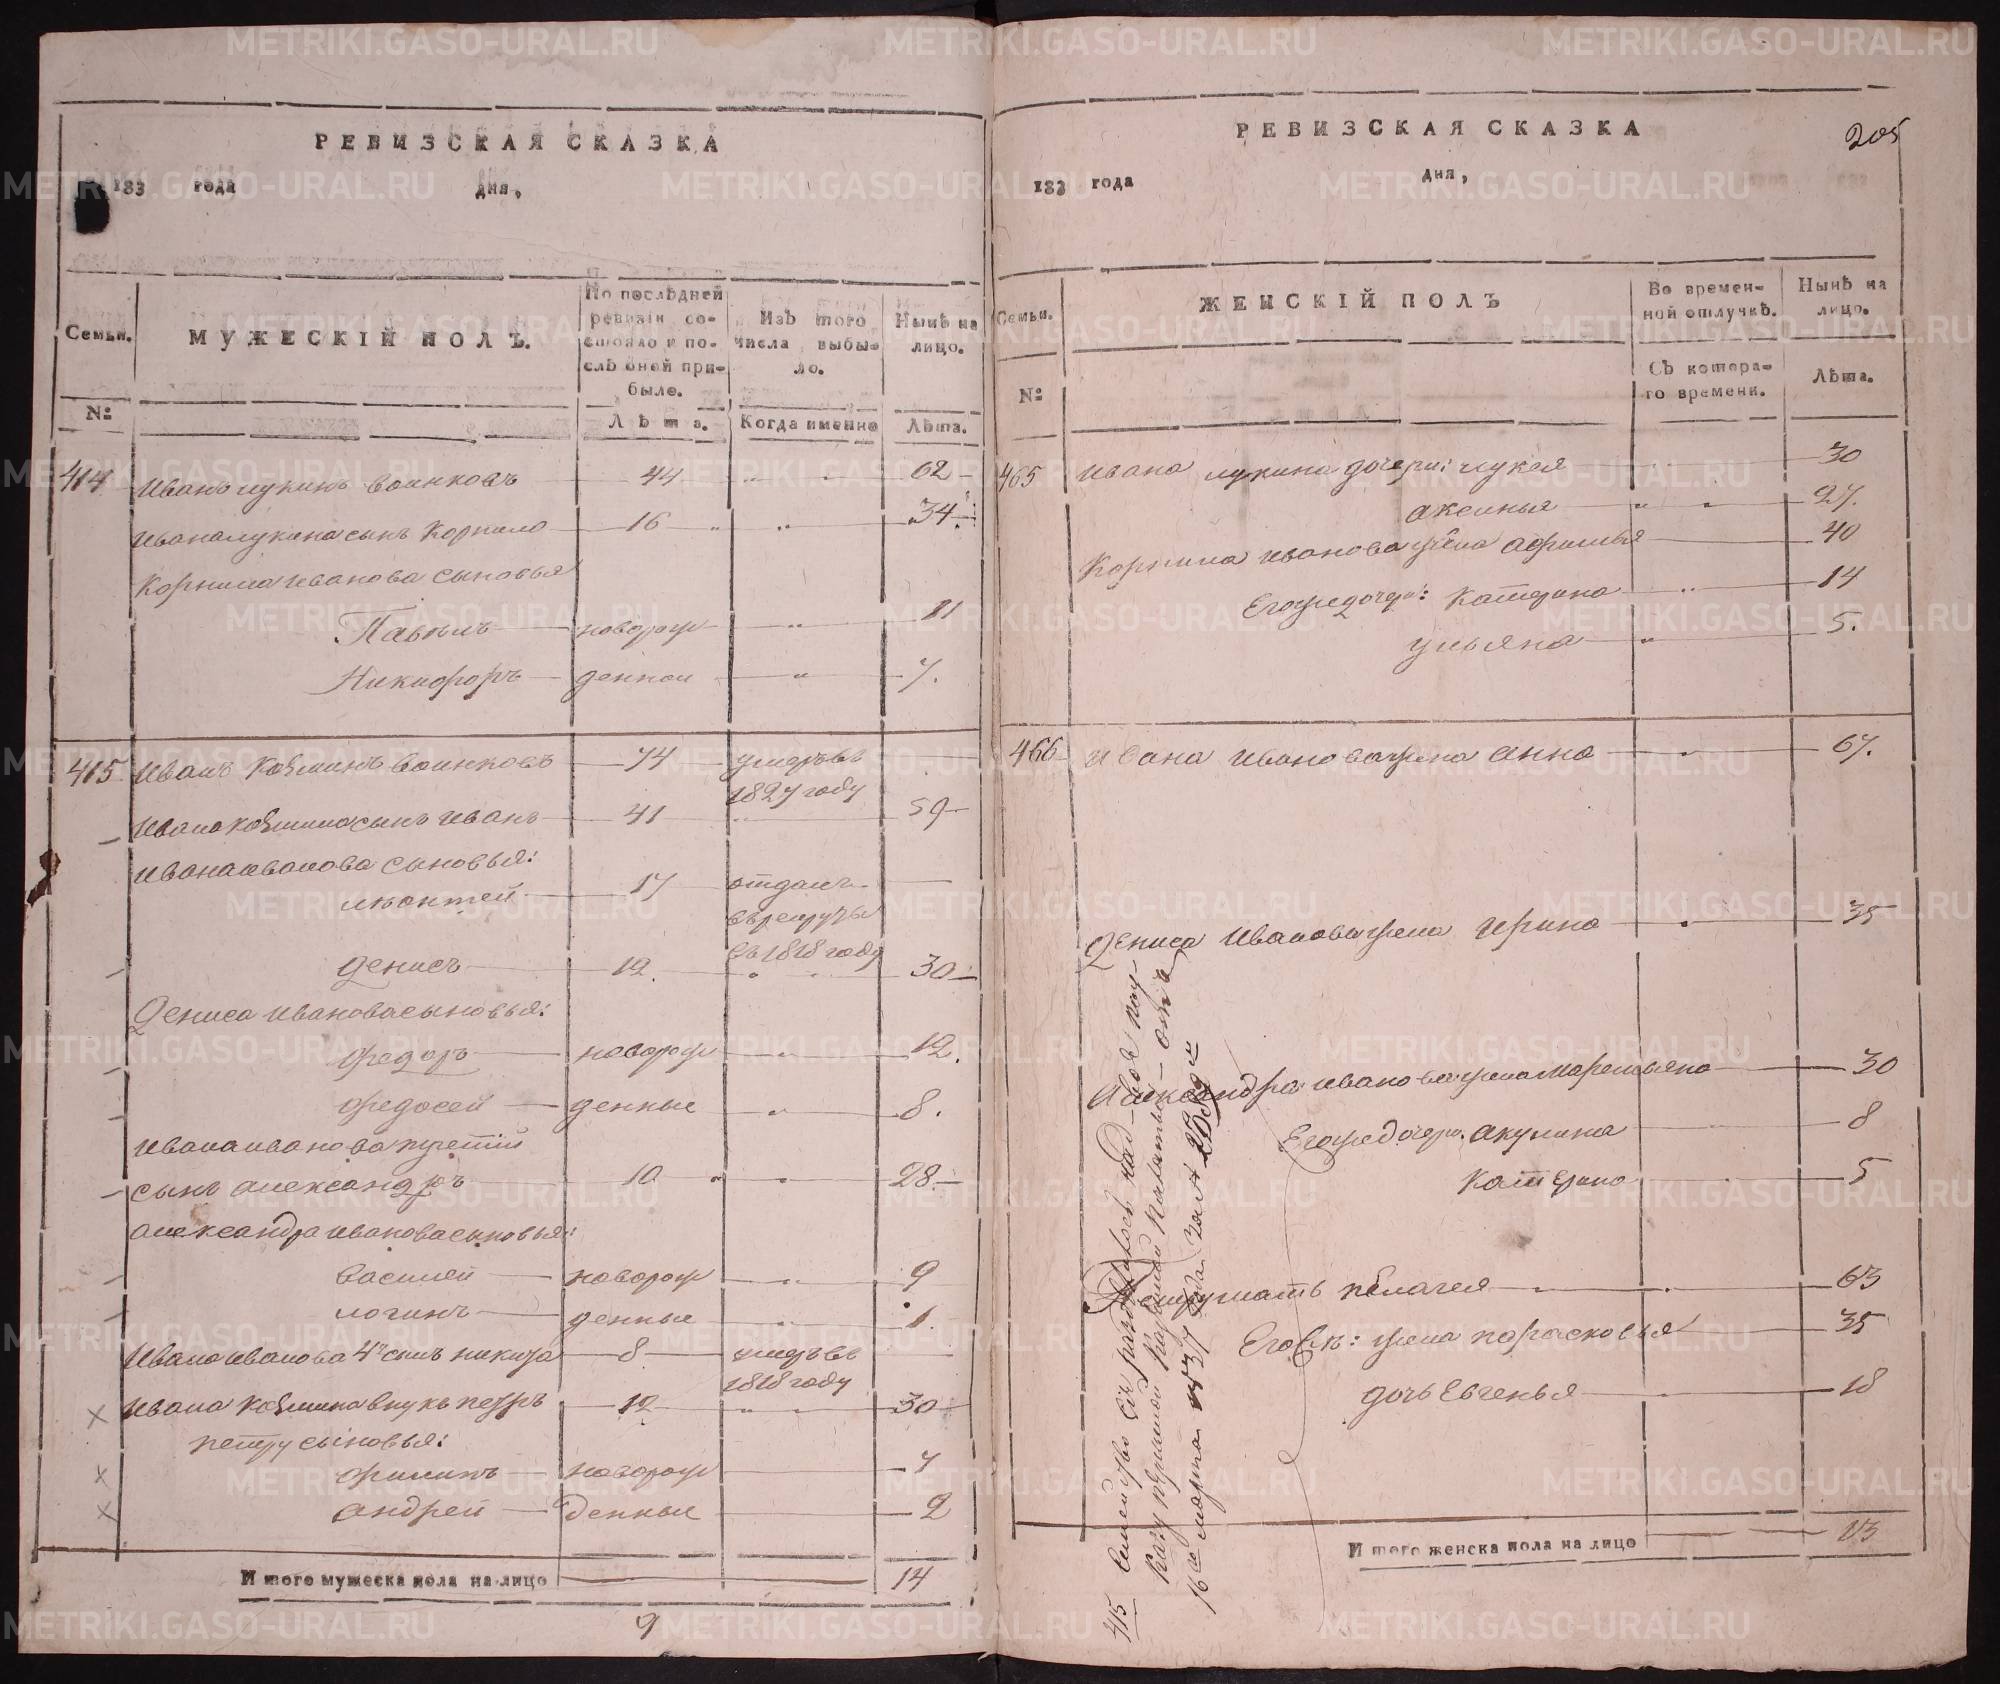 РЕВИЗСКАЯ СКАЗКА
183 года дня,
Семьи.
МУЖЕСКІЙ ПОЛЪ.
По послѣдней ревизіи состояло и послѣ оной прибыло.
Изъ того числа выбыло.
Нынѣ на лицо.
№
Лѣта.
Когда именно
Лѣта.
414 Иванъ Лукинъ Воинковъ 44 " 62
Ивана Лукина сынъ Корнило 16 " 34
Корнила Иванова сыновья
Павелъ новорож " 11
Никифоръ денной " 7.
415. Иванъ Козминъ Воинковъ 74 умеръ въ
1827 году
Ивана Козмина сынъ Иванъ 41 " 59
Ивана Иванова сыновья:
Леонтей 17 отданъ
въ рекруты
въ 1818 году
Денисъ 12. " 30
Дениса Иванова сыновья:
Федоръ новорож " 12.
Федосей денные " 8.
Ивана Иванова третій
сынъ Александръ 10 " 28
Александра Иванова сыновья:
Василей новорож " 9
Логинъ денные " 1.
Ивана Иванова 4й сынъ Никита 8 умеръ въ
1818 году
Ивана Козмина внукъ Петръ 12 " 30
Петру сыновья:
Филипъ новорож 7
Андрей денные 2
И того мужеска пола на лицо 14
9
РЕВИЗСКАЯ СКАЗКА
205
183 года дня,
Семьи.
ЖЕНСКІЙ ПОЛЪ
Во временной отлучкѣ.
Нынѣ на лицо.
№
Съ котораго времени.
Лѣта.
465 Ивана Лукина дочери: Лукея 30
Аксинья " 27.
Корнила Иванова жена Афимья 40
Его же дочери: Катерина " 14
Ульяна " 5.
466 Ивана Иванова жена Анна " 67.
Дениса Иванова жена Ирина " 35
Александра Иванова жена Маремьяна 30
Его же дочери. Акулина 8
Катерина 5
мать Пелагея " 63
Его жена Парасковья 35
дочь Евгенья 18
И того женска пола на лицо 13
415 Семейство
16 марта 1837 года за №